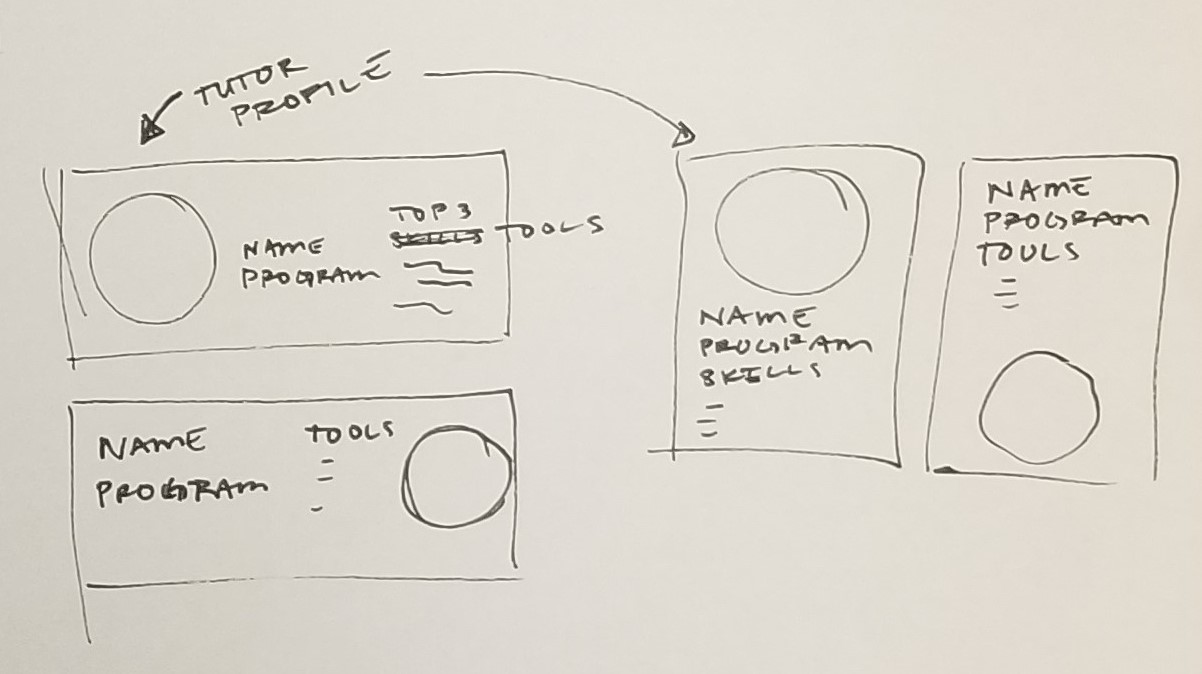 TUTOR
PROFILE
NAME
PROGRAM
TOP 3
SKILLS TOOLS
NAME
PROGRAM
TOOLS
NAME
PROGRAM
SKILLS
NAME
PROGRAM
TOOLS